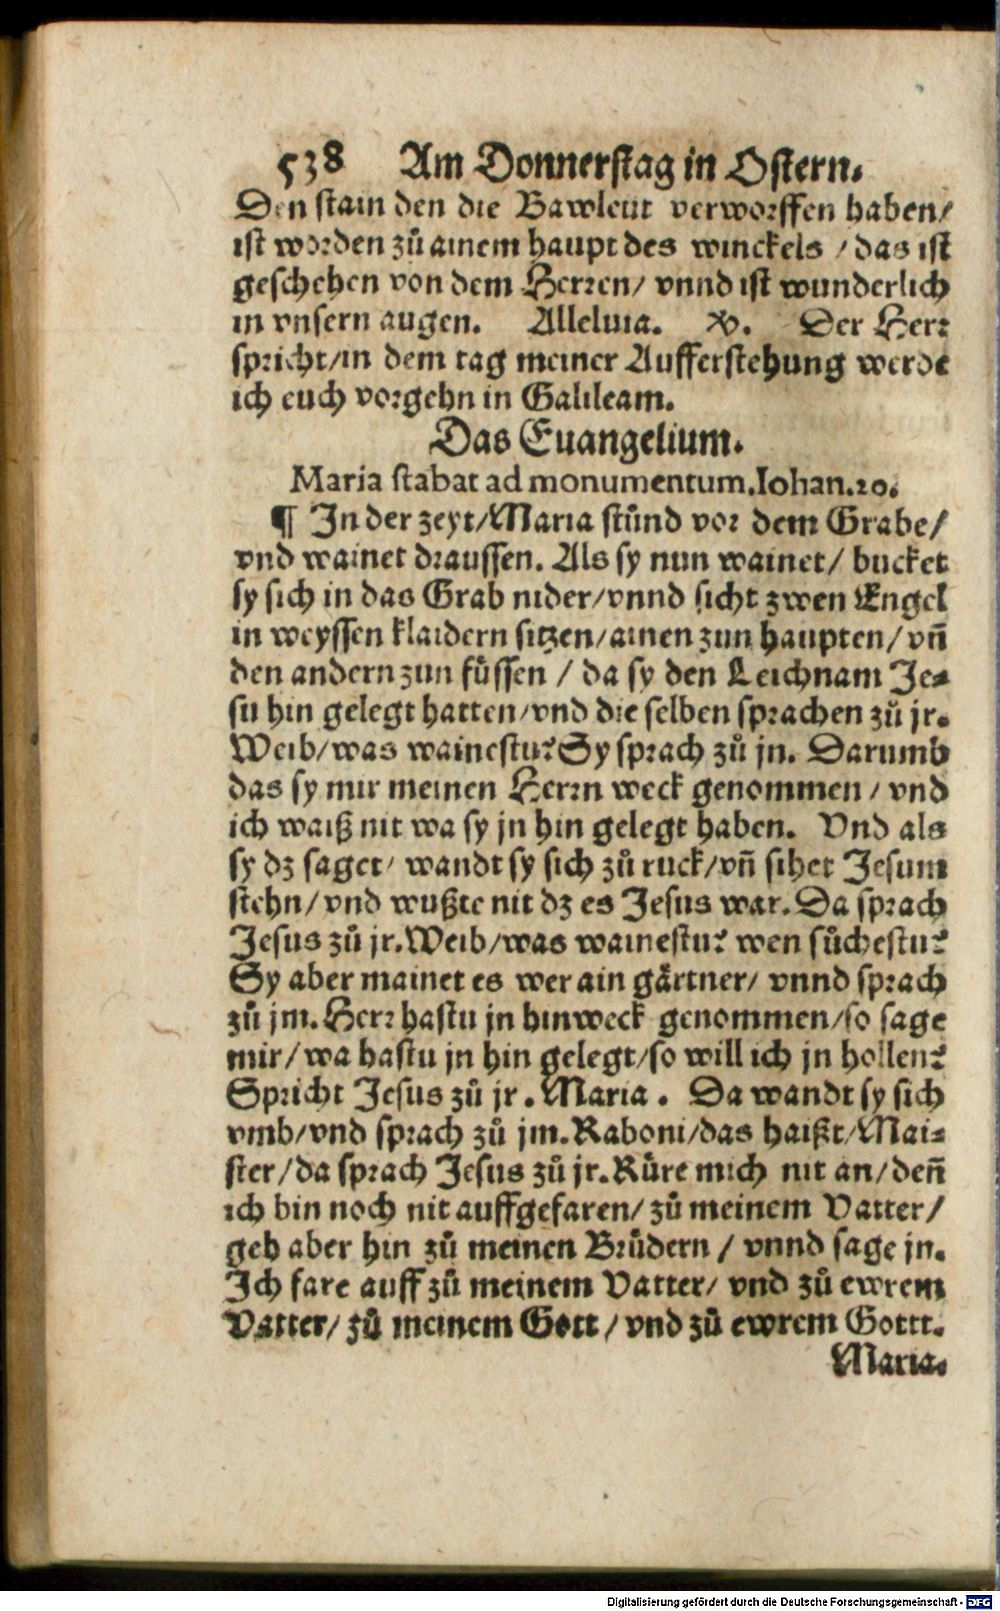 538 Am Donnerstag in Ostern.
Den stain den die Bawleut verworffen haben/
ist worden zů ainem haupt des winckels / das ist
geschehen von dem Herren/ vnnd ist wunderlich
in vnsern augen. Alleluia. ℣. Der Herr
spricht/in dem tag meiner Aufferstehung werde
ich euch vorgehn in Galileam.
Das Euangelium.
Maria stabat ad monumentum.Iohan.20.
¶ In der zeyt/Maria stůnd vor dem Grabe/
vnd wainet draussen. Als sy nun wainet/ bucket
sy sich in das Grab nider/vnnd sicht zwen Engel
in weyssen klaidern sitzen/ainen zun haupten/ vñ
den andern zun füssen / da sy den Leichnam Je-
su hin gelegt hatten/vnd die selben sprachen zů jr.
Weib/was wainestu? Sy sprach zů jn. Darumb
das sy mir meinen Herrn weck genommen / vnd
ich waiß nit wa sy jn hin gelegt haben. Vnd als
sy dz saget/ wandt sy sich zů ruck/vñ sihet Jesum
stehn/ vnd wußte nit dz es Jesus war. Da sprach
Jesus zů jr.Weib/was wainestu? wen sůchestu?
Sy aber mainet es wer ain gärtner/ vnnd sprach
zů jm. Herr hastu jn hinweck genommen/so sage
mir/wa hastu jn hin gelegt/so will ich jn hollen?
Spricht Jesus zů jr. Maria. Da wandt sy sich
vmb/vnd sprach zů jm.Raboni/das haißt/Mai-
ster/da sprach Jesus zů jr.Rüre mich nit an/deñ
ich bin noch nit auffgefaren/ zů meinem Vatter/
geh aber hin zů meinen Brůdern / vnnd sage jn.
Ich fare auff zů meinem Vatter/ vnd zů ewrem
Vatter/ zů meinem Gott / vnd zů ewrem Gottt.
Maria.
Digitalisierung gefördert durch die Deutsche Forschungsgemeinschaft - DFG